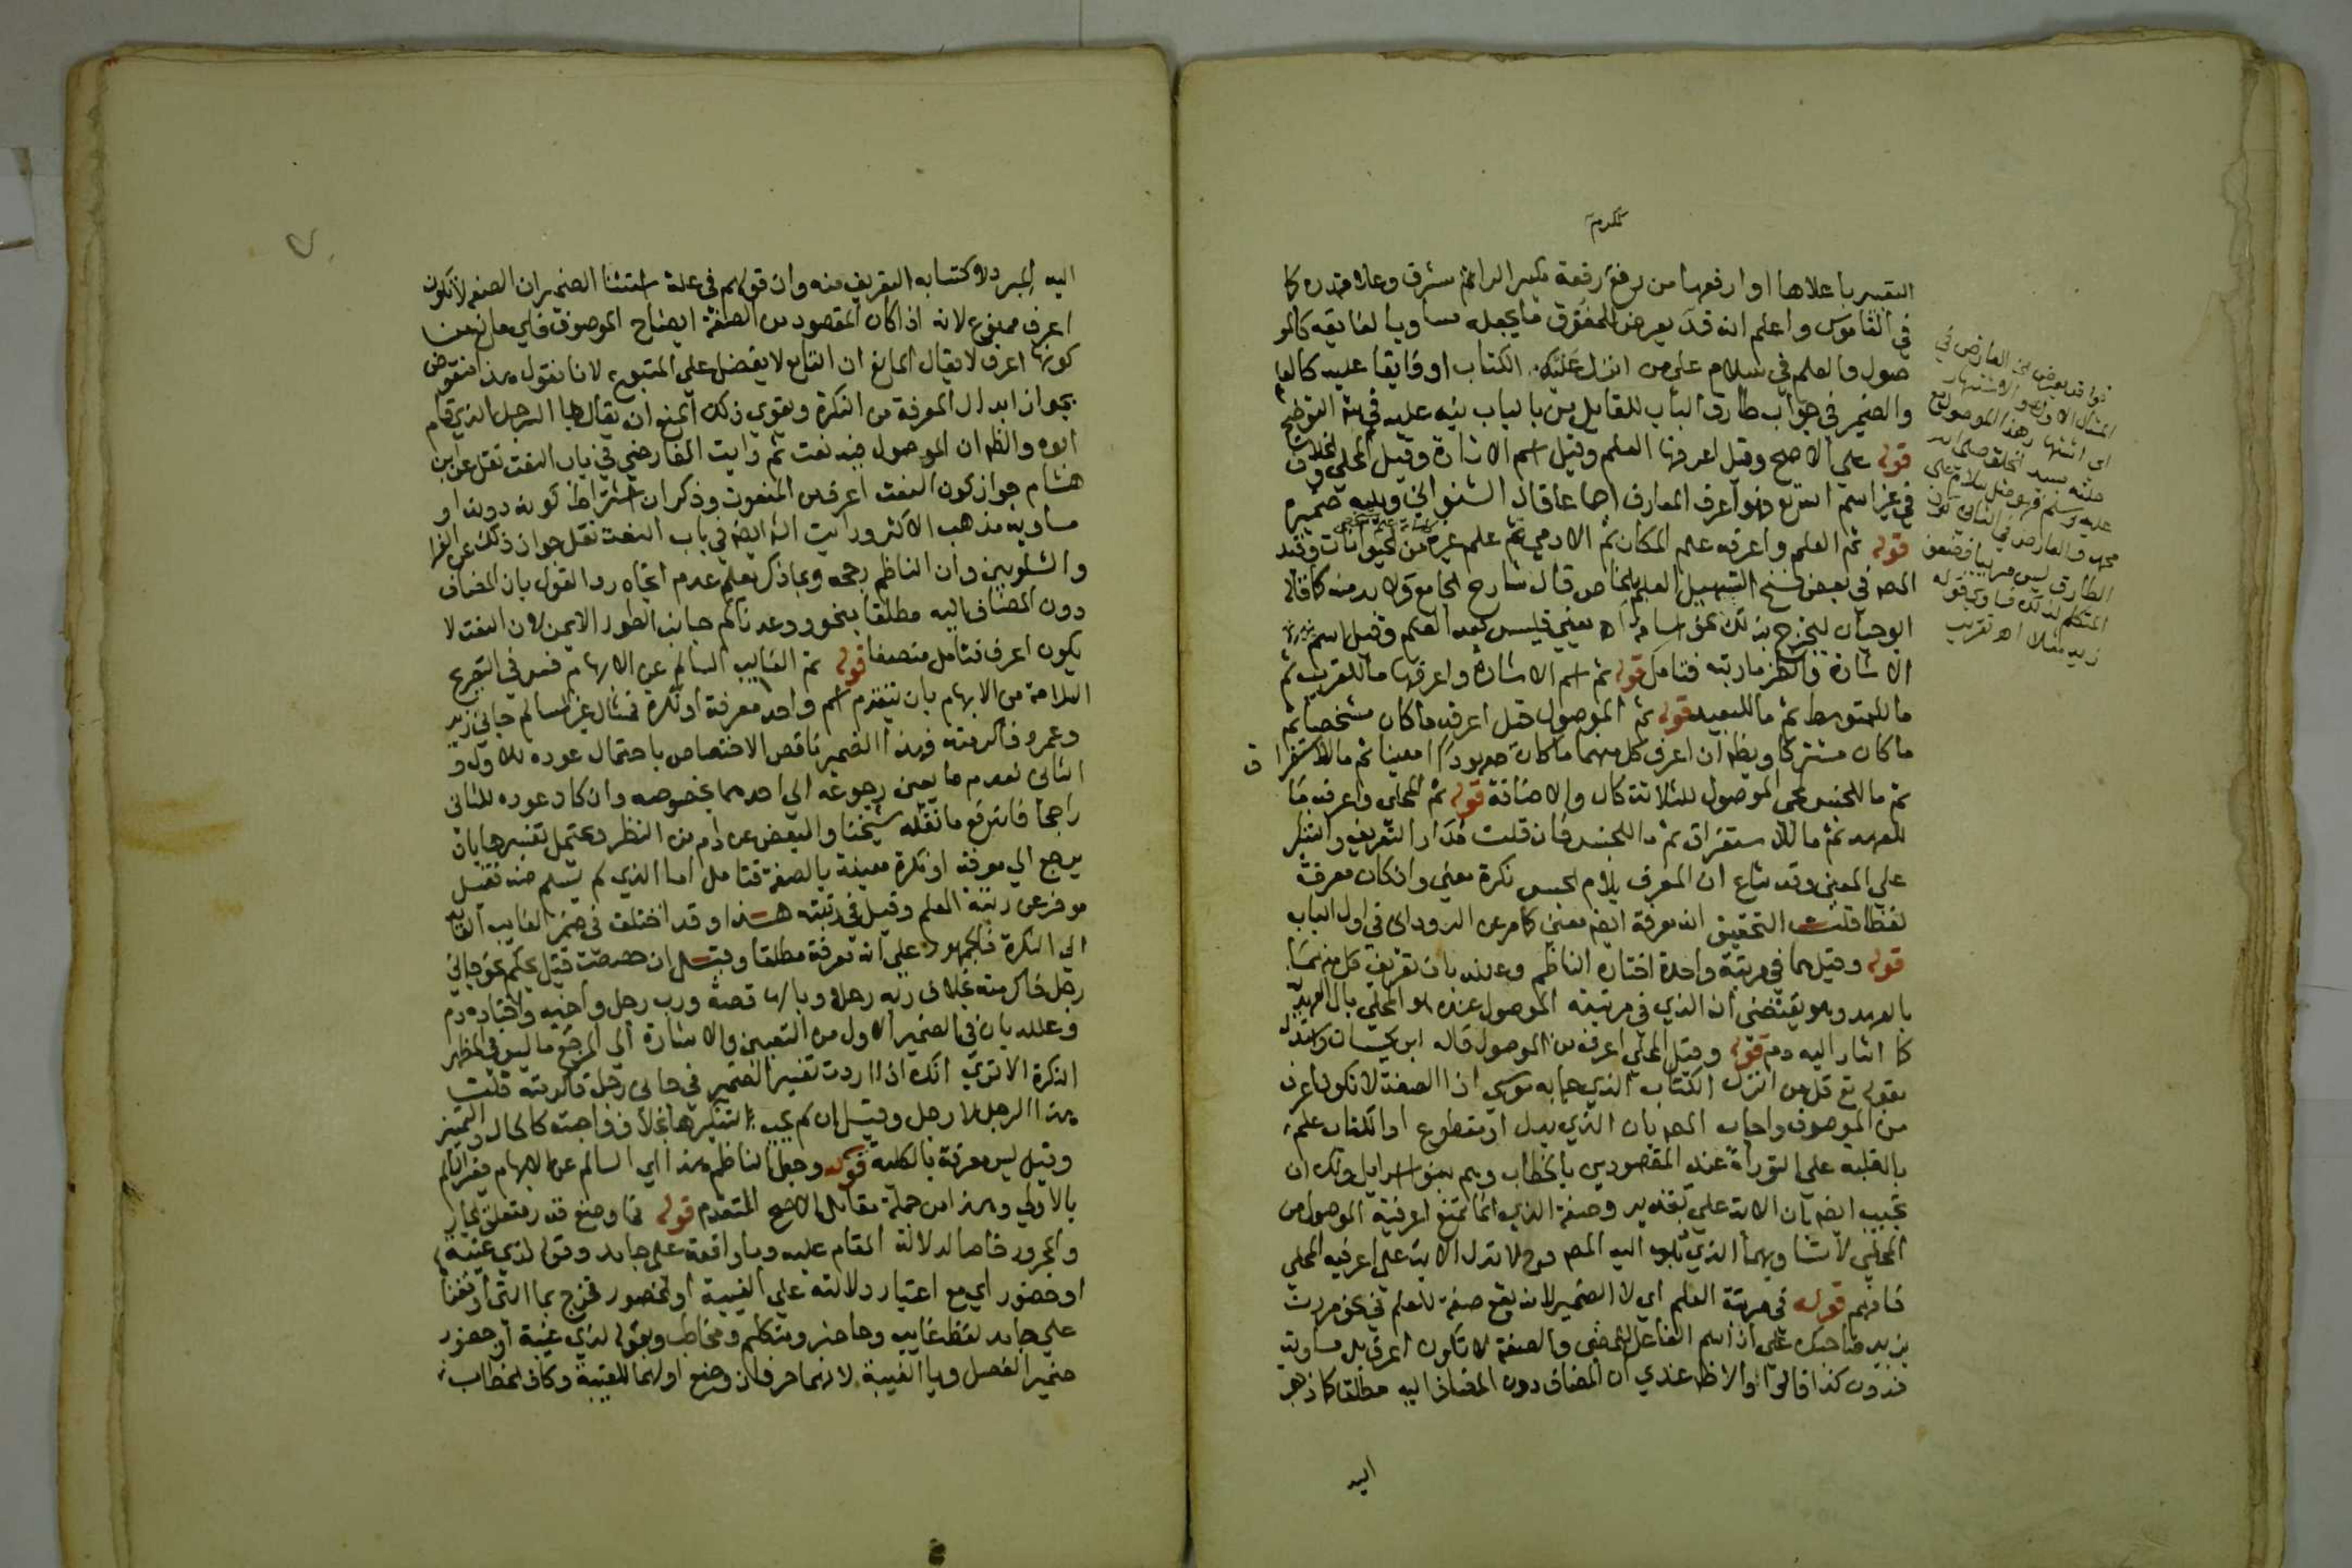 ككرم
التعبير باعلاها او ارفعها من رفع رفعة بكسر الراء شرف وعلا قدره كما
في القاموس واعلم انه قد يعرض للمفوق ما يجعله مساويا لفايقه كالمو
صول والعلم في سلام على من انزل عليك الكتاب او فايقا عليه كالعلم
والضمير في جواب طارق الباب للقايل من بالباب نبه عليه في التوضيح
قوله على الاصح وقيل اعرفها العلم وقيل اسم الاشارة وقيل المحلى والخلاف
في غير اسم الله تع وهو اعرف المعارف اجماعا قال الشنواني ويليه ضميره
قوله ثم العلم واعرفه علم المكان ثم الادمي ثم علم غيره من الحيوانات وقيد
المصه في بعض نسخ التسهيل العلم بالخاص قال شارح الجامع ولابد منه كما قاله
ابوحيان ليخرج بذلك نحو اسامة اه يعني فليس بعد العلم وقيل اسم
الاشارة وانظر ما رتبته فتامل قوله ثم اسم الاشارة واعرفها ما للقريب ثم
ما للمتوسط ثم ما للبعيد قوله ثم الموصول قيل اعرفه ما كان مختصا ثم
ما كان مشتركا ويظهر ان اعرف كل منهما ما كان معهودا معينا ثم ما للاستغرا ق
ثم ما للجنس لمجي الموصول للثلاثة كال والاضافة قوله ثم المحلى واعرفه ما
للعهد ثم ما للاستغراق ثم ما للجنس فان قلت مدار التعريف والتنكير
على المعنى وقد شاع ان المعرف بلام الجنس نكرة معنى وان كان معرفة
لفظا قلت التحقيق انه معرفة ايضا معنى كما مر عن الروداني في اول الباب
قوله وقيل هما في مرتبة واحدة اختاره الناظم وعلله بان تعريف كل منهما
بالعهد وهو يقتضي ان الذي في مرتبته الموصول عنده هو المحلى بال العهدية
كما اشار اليه دم قوله وقيل المحلى اعرف من الموصول قاله ابن كيسان واستدل
بقوله تع قل من انزل الكتاب الذي جا به موسى اذ الصفة لا تكون اعرف
من الموصوف واجاب المصه بان الذي بدل او مقطوع او الكتاب علم
بالغلبة على التوراة عند المقصودين بالخطاب وهم بنو اسرايل ولك ان
تجيب ايضا بان الاية على تقدير وصفية الذي انما تمنع اعرفية الموصول من
المحلى لا تساويهما الذي ذهب اليه المصه وح لا تدل الاية على اعرفية المحلى
فافهم قوله في مرتبة العلم اي لا الضمير لانه يقع صفة للعلم في نحو مررت
بزيد صاحبك على ان اسم الفاعل للمضى والصفة لا تكون اعرف بل مساوية
فدون كذا قالوا والاظهر عندي ان المضاف دون المضاف اليه مطلقا كما ذهب
اليه
قوله قد يعرض الخ العارض في
المثال الاول هو الاشتهار
اي اشتهار هذا الموصول مع
صلته بسيد الخلق صلى الله
عليه وسلم فهو مثل سلام على
محمد والعارض في الثاني كون
الطارق ليس مرئيا فضعف
المتكلم لذلك فساوى قوله
زيد مثلا اه تقريب
اليه المبرد لاكتسابه التعريف منه وان قولهم في علة استثنا الضمير ان الصفة لا تكون
اعرف ممنوع لانه اذا كان المقصود من الصفة ايضاح الموصوف فاي مانع من
كونها اعرف لا يقال المانع ان التابع لا يفضل على المتبوع لانا نقول هذا منقوض
بجواز ابدال المعرفة من النكرة ويقوي ذلك المنع ان يقال جا الرجل الذي قام
ابوه والظ ان الموصول فيه نعت ثم رايت الفارضي في باب النعت نقل عن ابن
هشام جواز كون النعت اعرف من المنعوت وذكر ان اشتراط كونه دونه او
مساويه مذهب الاكثر ورايت انه ايضا في باب النعت نقل جواز ذلك عن الفرا
والشلوبين وان الناظم رجحه وبما ذكر يعلم عدم اتجاه رد القول بان المضاف
دون المضاف اليه مطلقا بنحو ووعدناكم جانب الطور الايمن لان النعت لا
يكون اعرف فتامل منصفا قوله ثم الغايب السالم عن الابهام فسر في التصريح
السلامة من الابهام بان يتقدم اسم واحد معرفة او نكرة فمثال غير السالم جاني زيد
وعمرو فاكرمته فهذا الضمير ناقص الاختصاص باحتمال عوده للاول و
الثاني لعدم ما يعين رجوعه الى احدهما بخصوصه وان كان عوده للثاني
راجحا فاندفع ما نقله شيخنا والبعض عن دم من النظر ويحتمل تفسيرها بان
يرجع الى معرفة او نكرة معينة بالصفة فتامل اما الذي لم يسلم منه فقيل
موخر عن رتبة العلم وقيل في رتبته هذا وقد اختلف في ضمير الغايب العايد
الى النكرة فالجمهور على انه معرفة مطلقا وقيل ان خصصت قبل بحكم نحو جاني
رجل فاكرمته بخلاف ربه رجلا ويا لها قصة ورب رجل واخيه واختاره دم
وعلله بان في الضمير الاول من التعيين والاشارة الى المرجع ما ليس في المظهر
النكرة الا ترى انك اذا اردت تفسير الضمير في جاني رجل فاكرمته قلت
هذا الرجل لا رجل وقيل ان لم يجب تنكيرها بخلاف واجبته كالحال والتمييز
وقيل ليس معرفة بالكلية قوله وجعل الناظم هذا اي السالم عن الابهام فغير السالم
بالاولى وهذا من جملة مقابل الاصح المتقدم قوله فما وضع قدر متعلق الجار
والمجرور خاصا لدلالة المقام عليه وما واقعة على جامد وقوله لذي غيبة
او حضور اي مع اعتبار دلالته على الغيبة او الحضور فخرج بما التي اوقعنا
على جامد لفظ غايب وحاضر ومتكلم ومخاطب وبقوله لذي غيبة او حضور
ضمير الفصل ويا الغيبة لانهما حرفان وضع اولهما للغيبة وكاف الخطاب